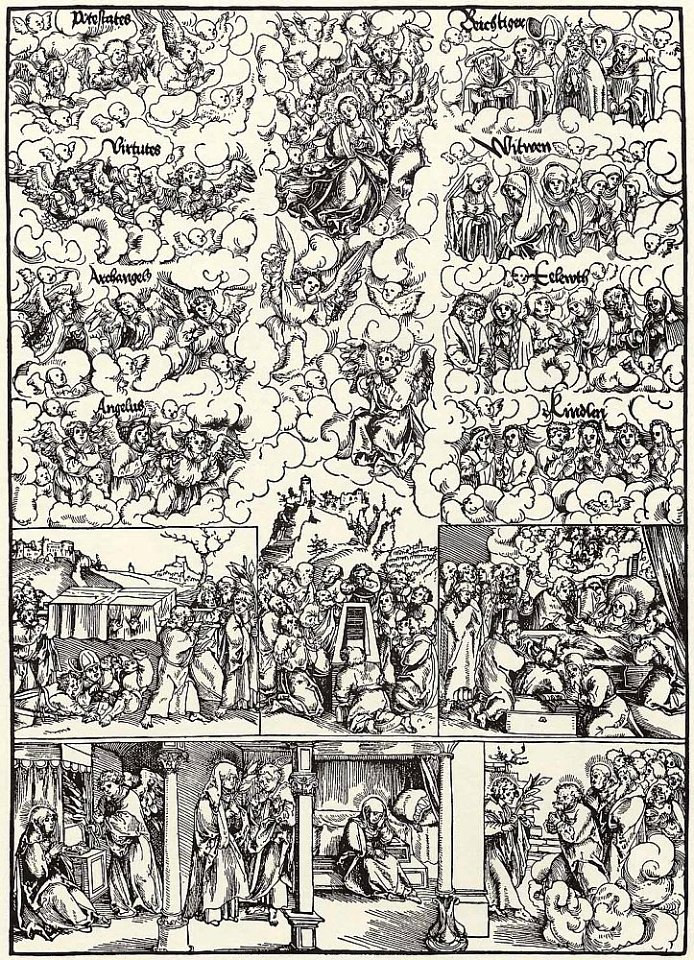 Potestates
Beichtiger
Virtutes
Witwen
Archangels
Eelewth
Angelus